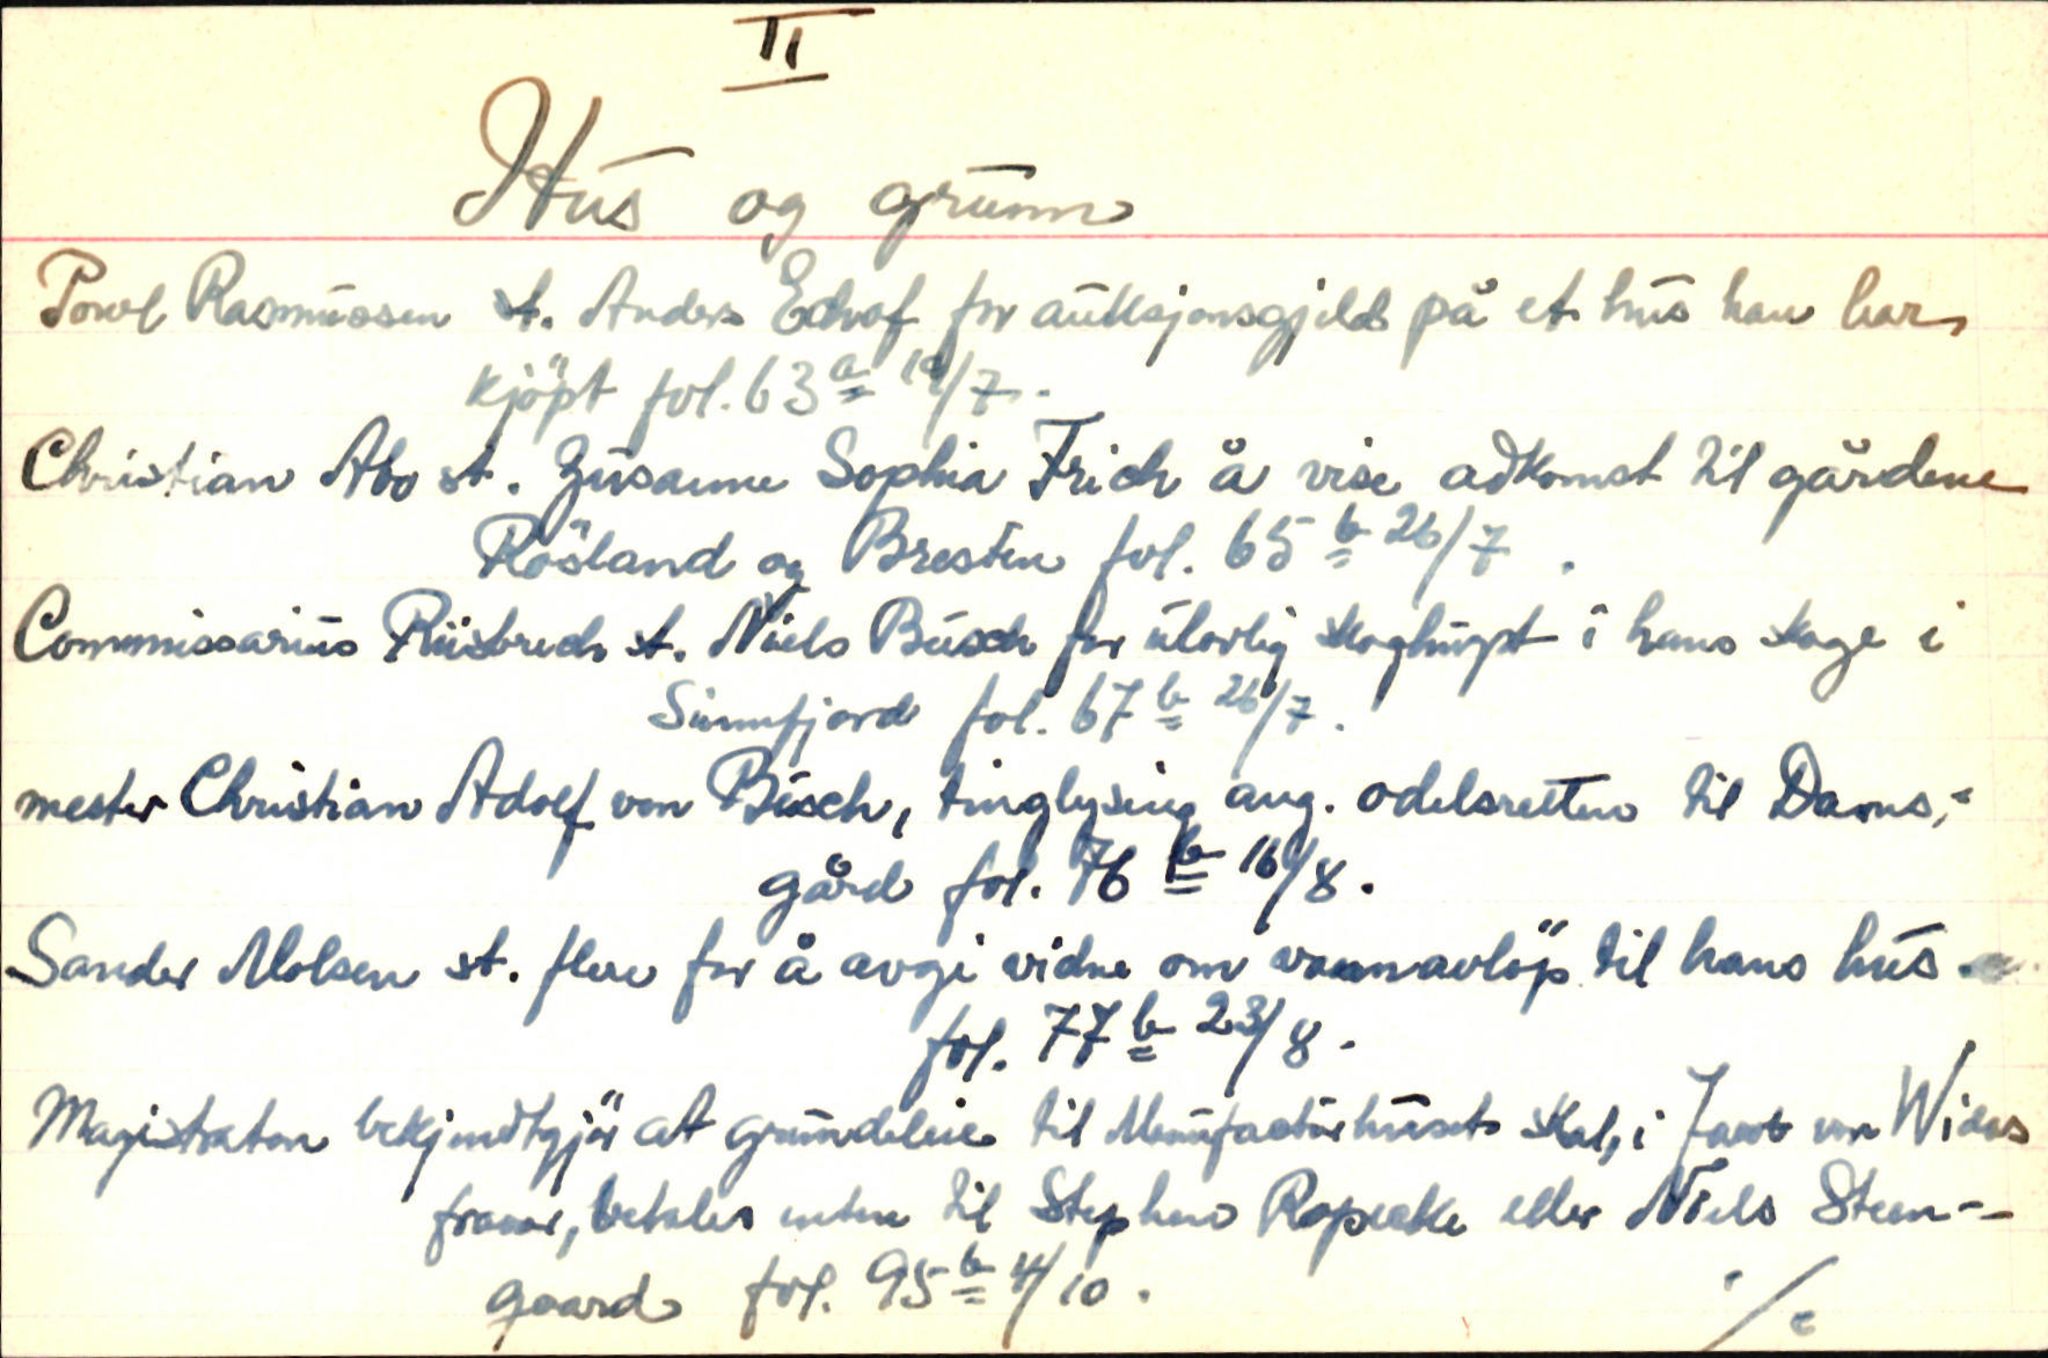 II
Hus og grunn
Powl Rasmussen st. Anders Edvaf for auksjonsgjeld på et hus han har
kjöpt fol. 63 a 19/7.
Christian Abo st. Zusanne Sophia Frich å vise adkomst til gårdene
Rösland og Bresten fol. 65 b 26/7.
Commissarius Riisbrech st. Niels Busch for ulovlig skoghugst i hans skoge i
Sunnfjord fol. 67 b 26/7.
mester Christian Adolf von Busch, tinglysing ang. odelsretten til Dams-
gård fol. 76 b 16/8.
Sander Molsen st. flere for å avgi vidne om vannavlöp til hans hus.
fol. 77 b 23/8.
Magistraten bekjendtgjör at grundeleie til Manufacturhuset skal, i Jacob von Widas
fravær, betales enten til Stephen Ropecke eller Niels Steen-
gaard fol. 95 b 4/10.
./.